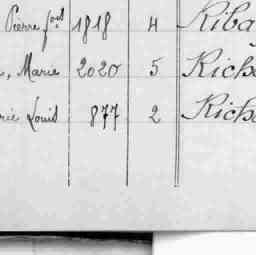 Pierre fois 1818 4 Riba
, Marie 2020 5 Riche
rie Louis 877 2 Riche